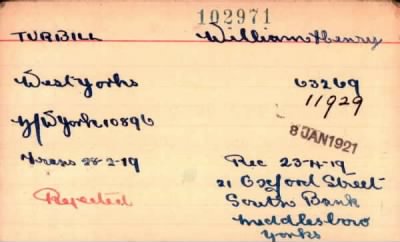 102971
TURBILL William Henry
West Yorks 63269
11929
Y/W York 10896
8 JAN 1921
Trans 28-2-19 Rec 23-4-19
Rejected 21 Oxford Street
South Bank
Middlesboro
Yorks